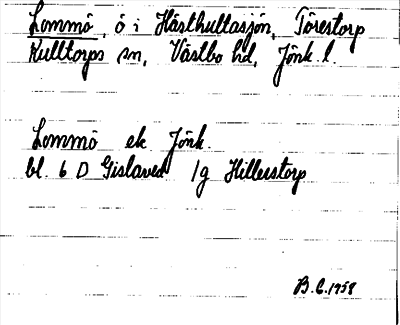 Lommö, ö i Hästhultasjön, Törestorp
Kulltorps sn, Västbo hd, Jönk. l.
Lommö ek Jönk.
bl. 6 D Gislaved 1g Hillerstorp
B.C. 1958